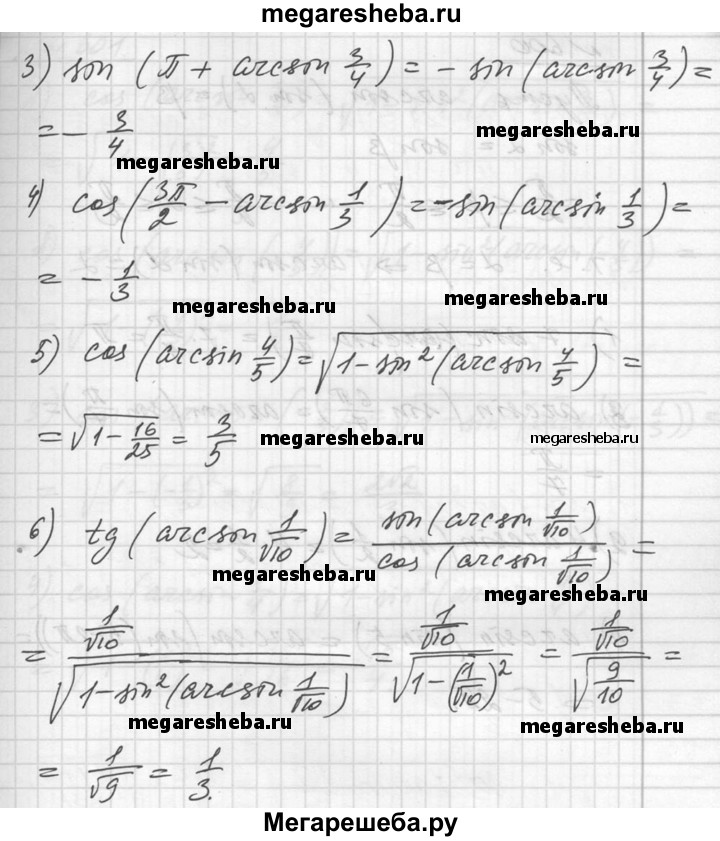 megaresheba.ru
3) sin (π + arcsin 3/4) = - sin (arcsin 3/4) =
= - 3/4
megaresheba.ru
megaresheba.ru
4) cos (3π/2 - arcsin 1/3) = -sin (arcsin 1/3) =
= - 1/3
megaresheba.ru
megaresheba.ru
5) cos (arcsin 4/5) = √(1 - sin² (arcsin 4/5)) =
= √(1 - 16/25) = 3/5
megaresheba.ru
megaresheba.ru
6) tg (arcsin 1/√10) = sin (arcsin 1/√10) / cos (arcsin 1/√10) =
megaresheba.ru
megaresheba.ru
= 1/√10 / √(1 - sin² (arcsin 1/√10)) = 1/√10 / √(1 - (1/√10)²) = 1/√10 / √(9/10) =
megaresheba.ru
megaresheba.ru
= 1/√9 = 1/3.
Мегарешеба.ру